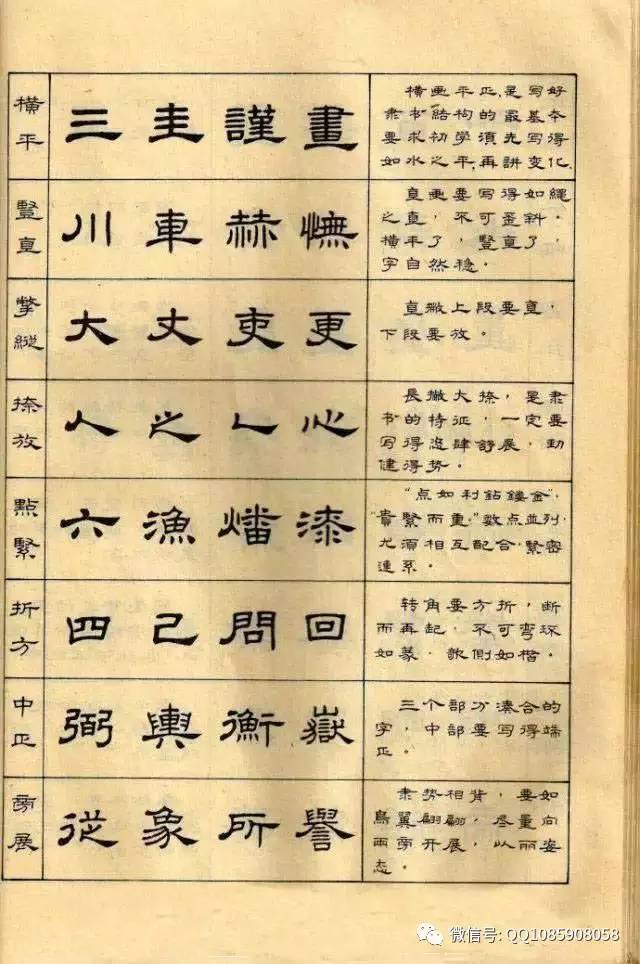 横平
三 圭 謹 畫
横画平正,是写好
隶书結构的最基本
要求初学須先写得
如水之平,再讲变化.
豎直
川 車 赫 憮
直画要写得如繩
之直,不可歪斜.
横平了,豎直了,
字自然稳.
撆縱
大 丈 吏 更
直撇上段要直,
下段要放。
捺放
人 之 心
長撇大捺,是隶
书的特征,一定要
写得恣肆舒展,劲
健得势。
點緊
六 漁 燔 漆
"点如利鉆鏤金",
"貴緊而重"数点並列.
尤須相互配合.緊密
連系.
折方
四 己 問 回
转角要方折,断
而再起.不可弯环
如篆,欹侧如楷.
中正
弼 輿 衡 嶽
三个部分湊合的
字,中部要写得端
正。
旁展
從 象 所 譽
隶势相背,要如
鳥翼翩翩,尽量向
两旁开展,以丽姿
态.
微信号: QQ1085908058